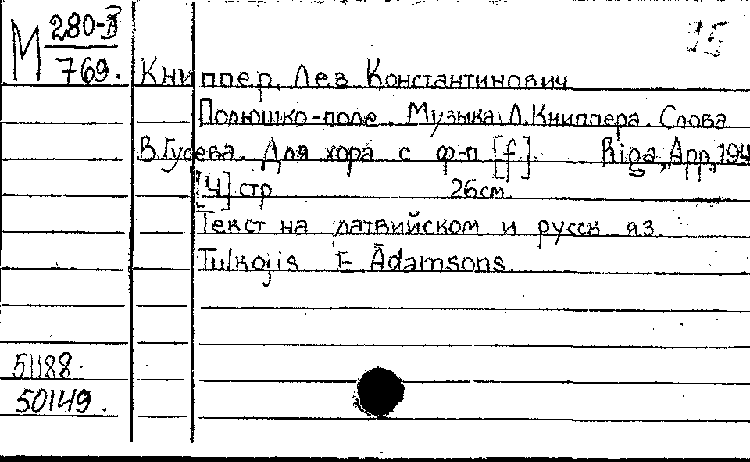 М 280-II
769.
15
Книппер, Лев Константинович
Полюшко-поле. Музыка Л.Книппера. Слова
В.Гусева. Для хора с ф-п [f]. Riga, App, 194
[4] стр 26см.
Текст на латвийском и русск яз.
Tulkojis E Ādamsons
51188.
50149.